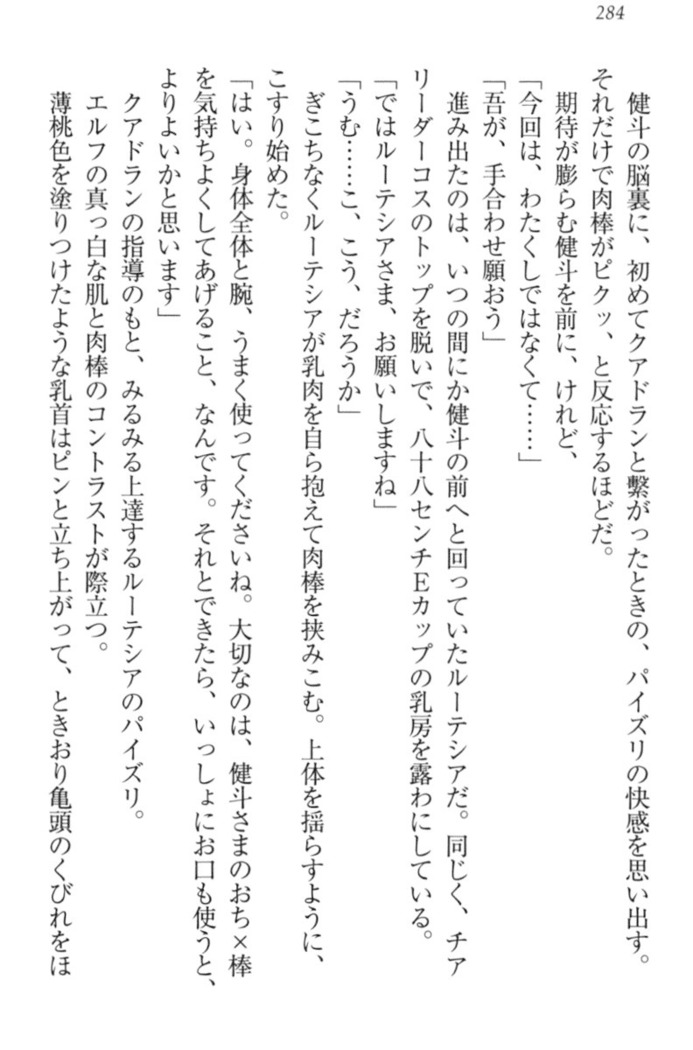 284
健斗の脳裏に、初めてクアドランと繋がったときの、パイズリの快感を思い出す。
それだけで肉棒がピクッ、と反応するほどだ。
期待が膨らむ健斗を前に、けれど、
「今回は、わたくしではなくて……」
「吾が、手合わせ願おう」
進み出たのは、いつの間にか健斗の前へと回っていたルーテシアだ。同じく、チア
リーダーコスのトップを脱いで、八十八センチEカップの乳房を露わにしている。
「ではルーテシアさま、お願いしますね」
「うむ……こ、こう、だろうか」
ぎこちなくルーテシアが乳肉を自ら抱えて肉棒を挟みこむ。上体を揺らすように、
こすり始めた。
「はい。身体全体と腕、うまく使ってくださいね。大切なのは、健斗さまのおち×棒
を気持ちよくしてあげること、なんです。それとできたら、いっしょにお口も使うと、
よりよいかと思います」
クアドランの指導のもと、みるみる上達するルーテシアのパイズリ。
エルフの真っ白な肌と肉棒のコントラストが際立つ。
薄桃色を塗りつけたような乳首はピンと立ち上がって、ときおり亀頭のくびれをほ